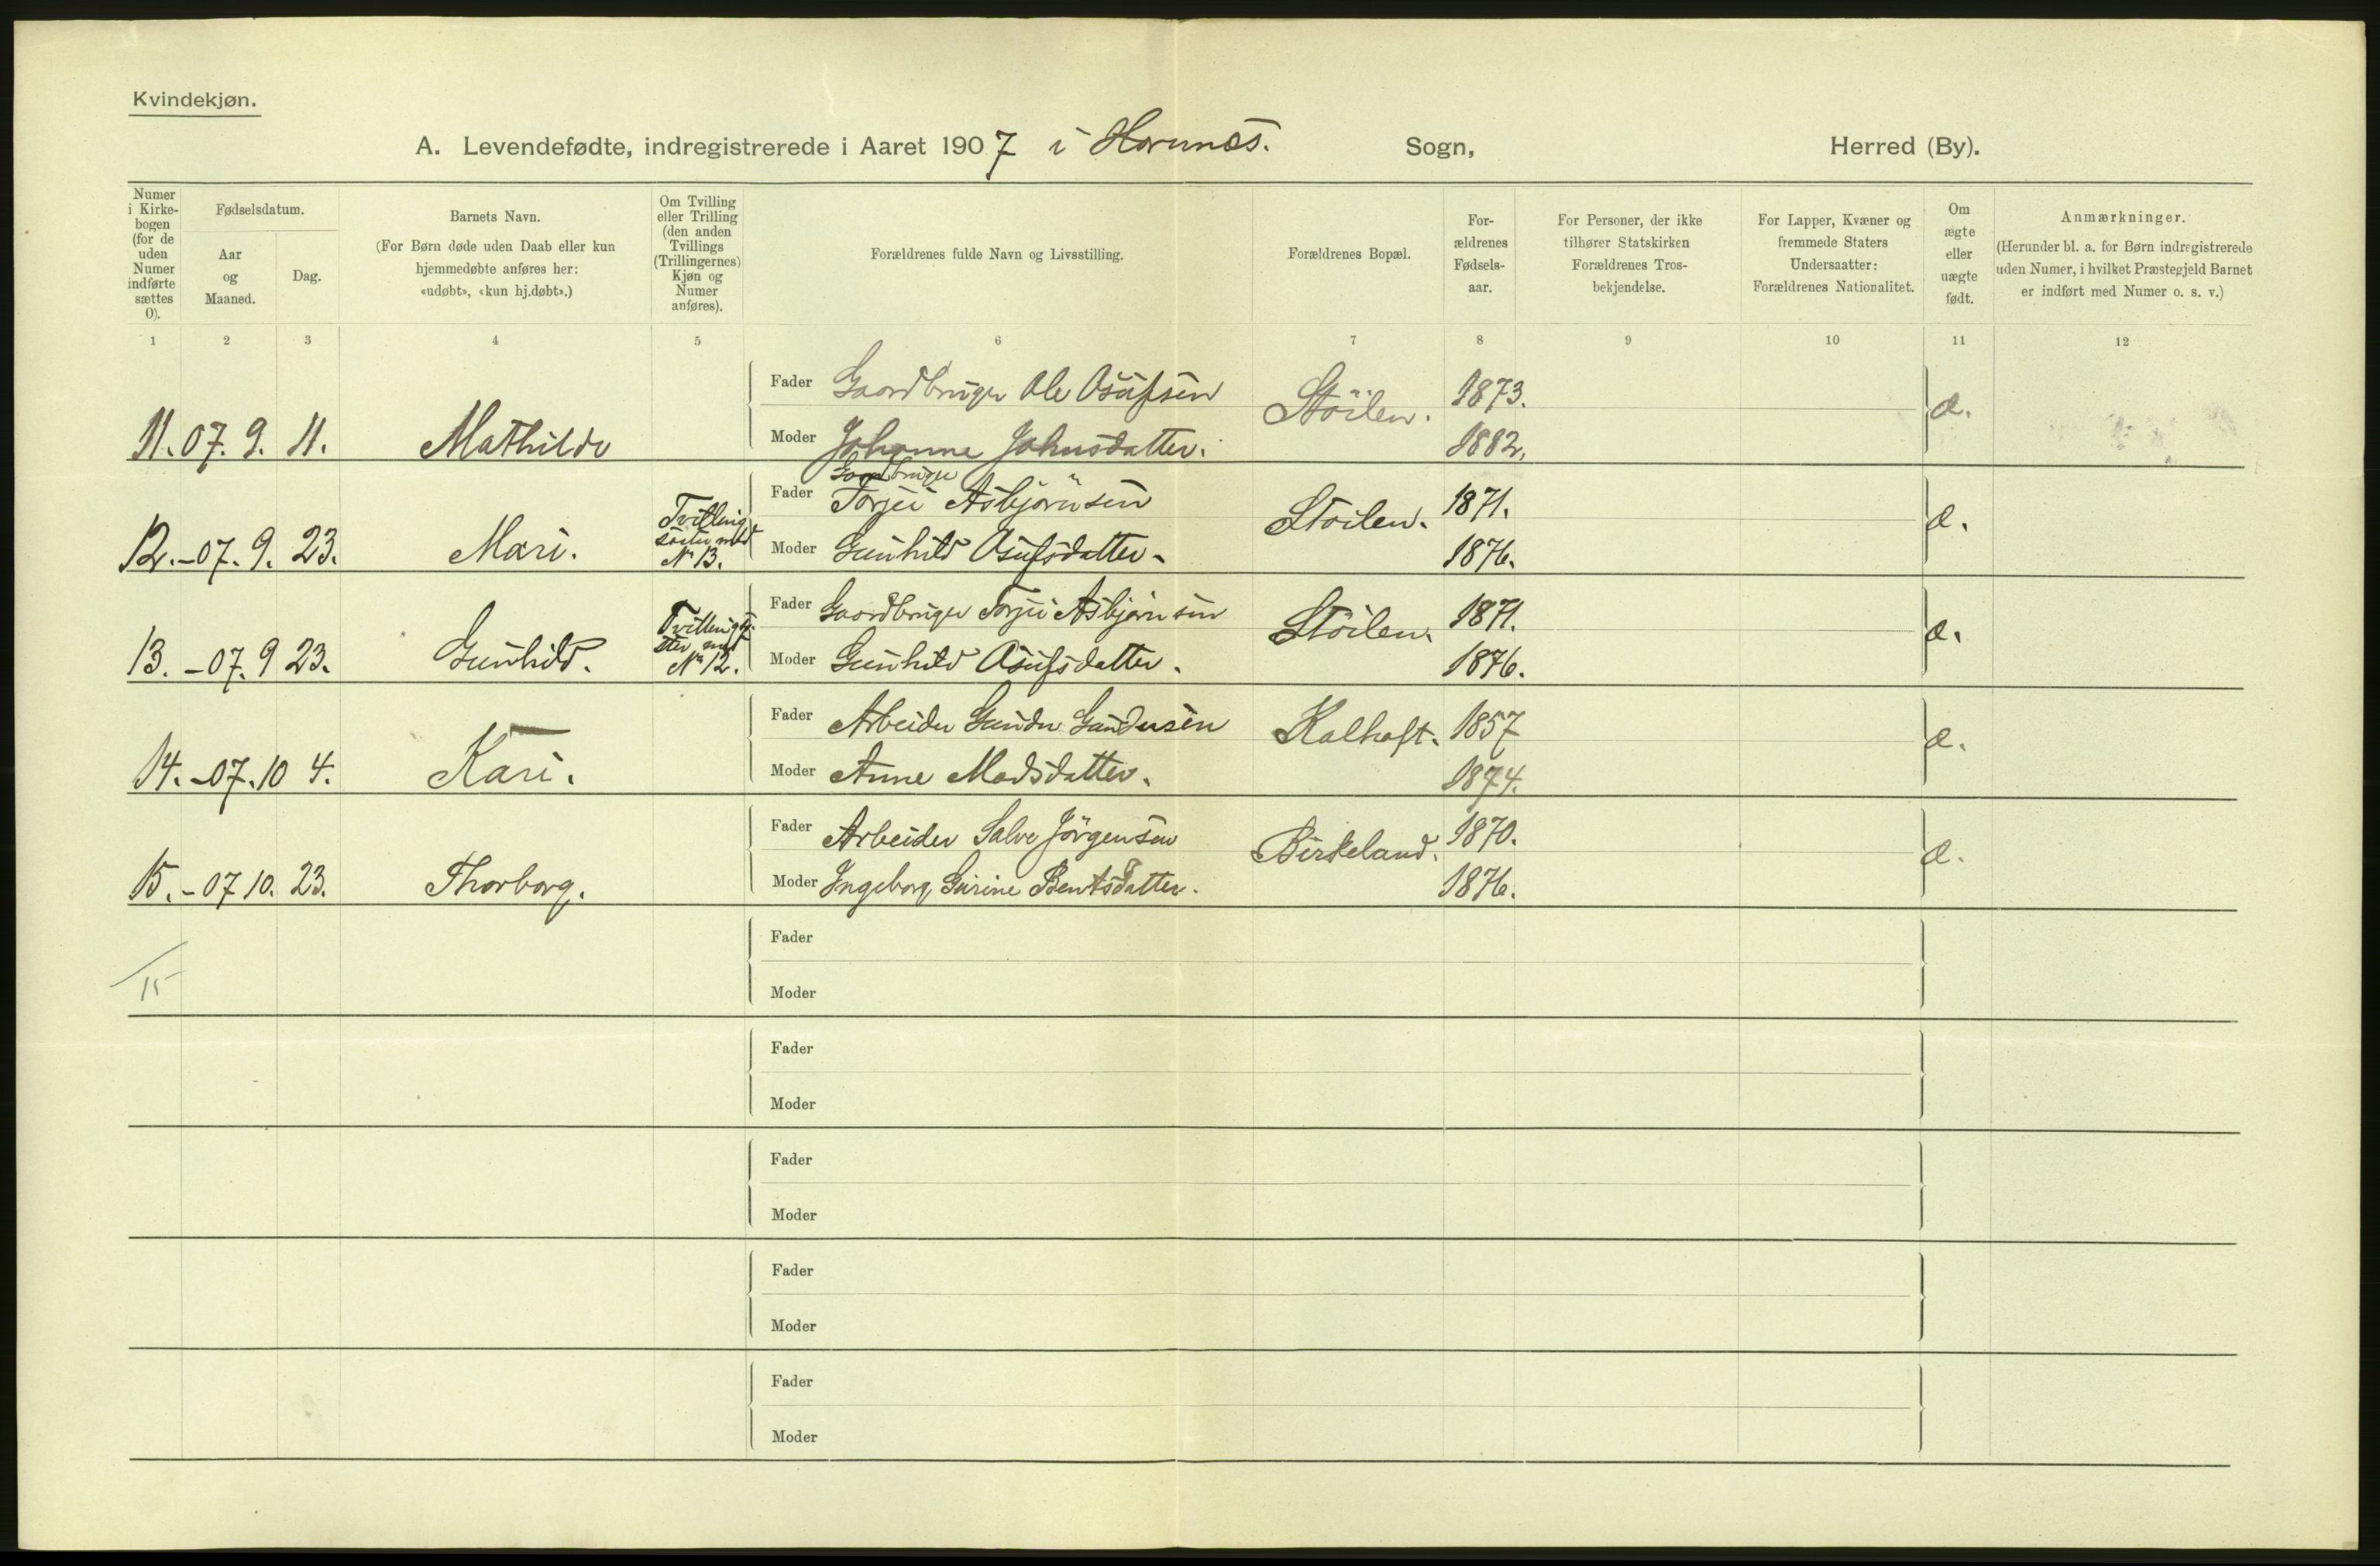 Kvindekjøn.
A. Levendefødte, indregistrerede i Aaret 1907 i Hornnes. Sogn, Herred (By).
Numer i Kirkebogen (for de uden Numer indførte sættes 0).
Fødselsdatum.
Aar og Maaned.
Dag.
Barnets Navn.
(For Børn døde uden Daab eller kun hjemmedøbte anføres her: «udøbt», «kun hj.døbt».)
Om Tvilling eller Trilling (den anden Tvillings (Trillingernes) Kjøn og Numer anføres).
Forældrenes fulde Navn og Livsstilling.
Forældrenes Bopæl.
Forældrenes Fødselsaar.
For Personer, der ikke tilhører Statskirken Forældrenes Trosbekjendelse.
For Lapper, Kvæner og fremmede Staters Undersaatter: Forældrenes Nationalitet.
Om ægte eller uægte født.
Anmærkninger.
(Herunder bl. a. for Børn indregistrerede uden Numer, i hvilket Præstegjeld Barnet er indført med Numer o. s. v.)
1 2 3 4 5 6 7 8 9 10 11 12
Fader Gaardbruger Ole Osufsen Stöilen. 1873. æ.
11. 07. 9. 11. Mathilde Moder Johanne Johnsdatter. 1882.
Gaardbruger
Fader Torjei Asbjörnsen Stöilen. 1871. æ.
12. -07. 9. 23. Mari. Tvillingsöster med No 13. Moder Gunhild Osufsdatter. 1876.
Fader Gaardbruger Torjei Asbjörnsen Stöilen. 1871. æ.
13. -07. 9 23. Gunhild. Tvillingsöster med No 12. Moder Gunhild Osufsdatter. 1876.
Fader Arbeider Gunder Gundersen Kalhoft. 1857 æ.
14. -07. 10 4. Kari. Moder Anne Madsdatter. 1874.
Fader Arbeider Salve Jörgensen Birkeland. 1870. æ.
15. -07 10. 23. Thorborg. Moder Ingeborg Gurine Bentsdatter. 1876.
Fader
15
Moder
Fader
Moder
Fader
Moder
Fader
Moder
Fader
Moder